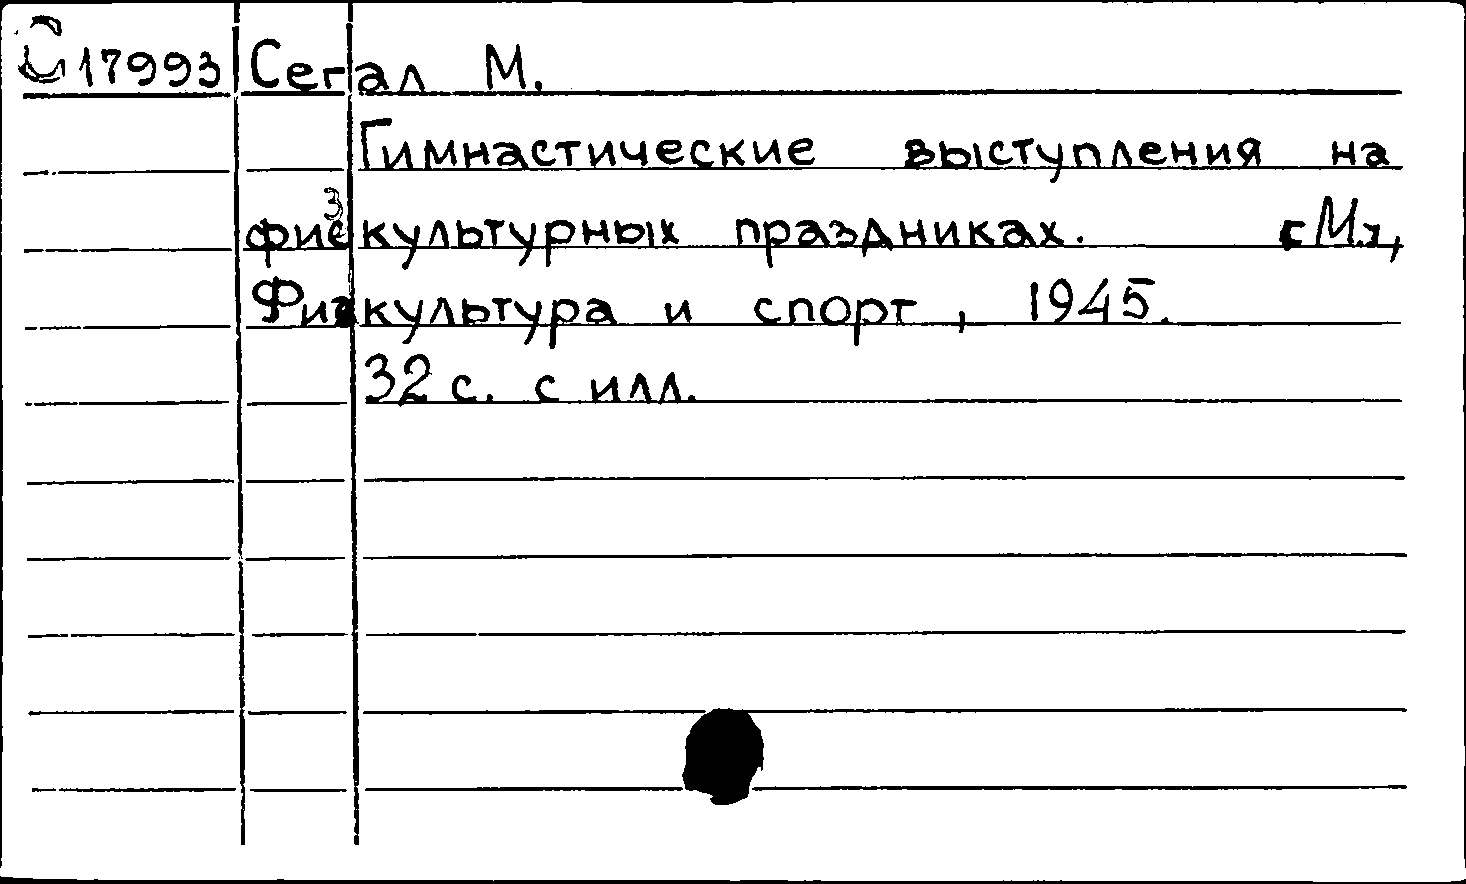 С17993 Сегал М.
Гимнастические выступления на
физкультурных праздниках. [М.],
Физкультура и спорт, 1945.
32 с. с илл.